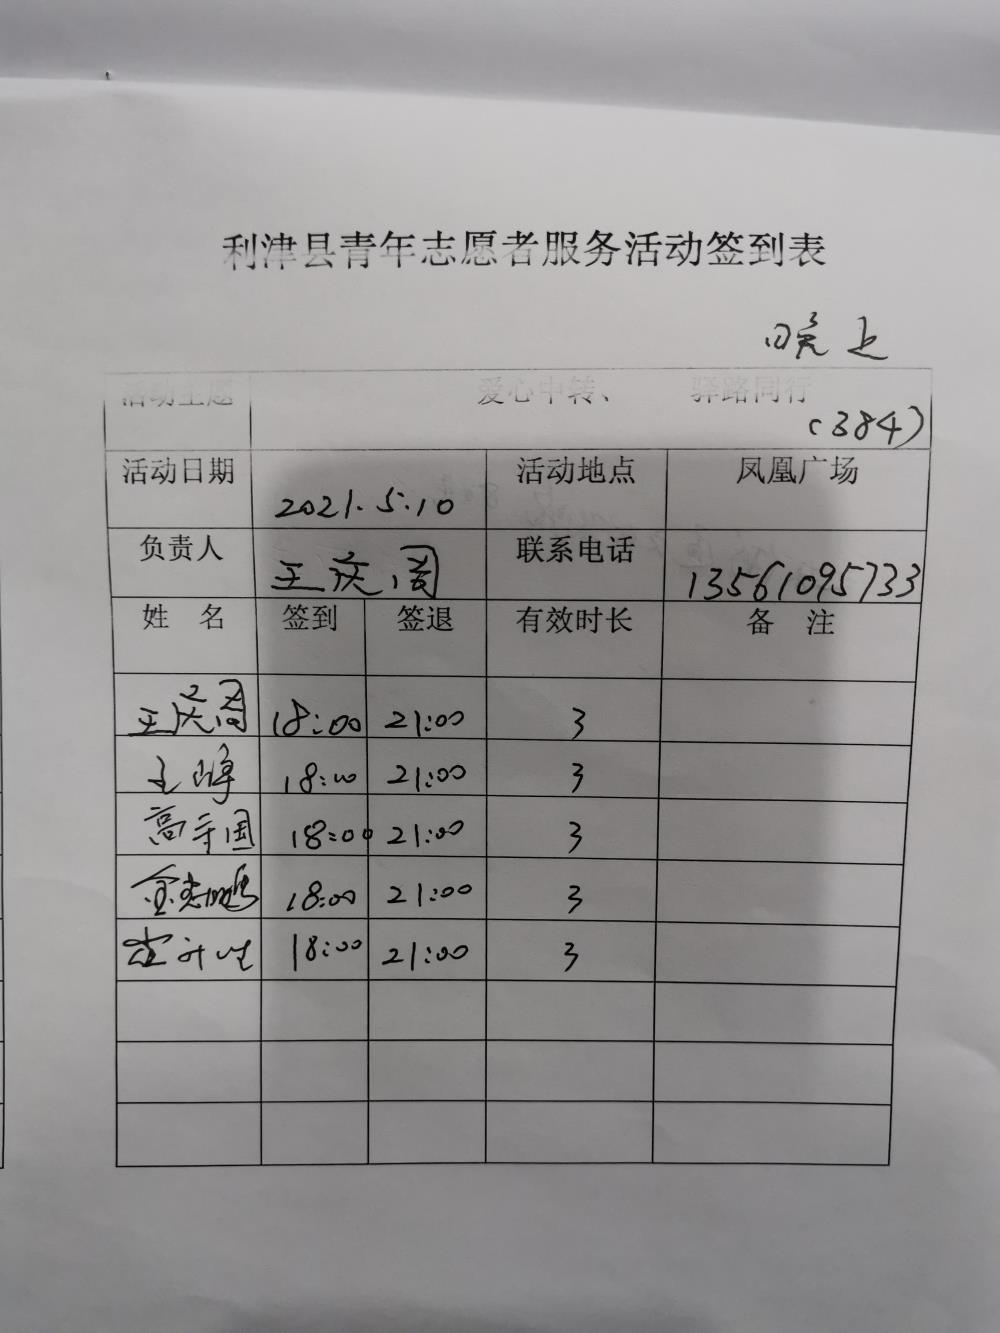 利津县青年志愿者服务活动签到表
晚上
活动主题 爱心中转、 驿路同行
(384)
活动日期 2021.5.10 活动地点 凤凰广场
负责人 王庆周 联系电话 13561095733
姓 名 签到 签退 有效时长 备 注
王庆周 18:00 21:00 3
王峰 18:00 21:00 3
高守国 18:00 21:00 3
18:00 21:00 3
18:00 21:00 3